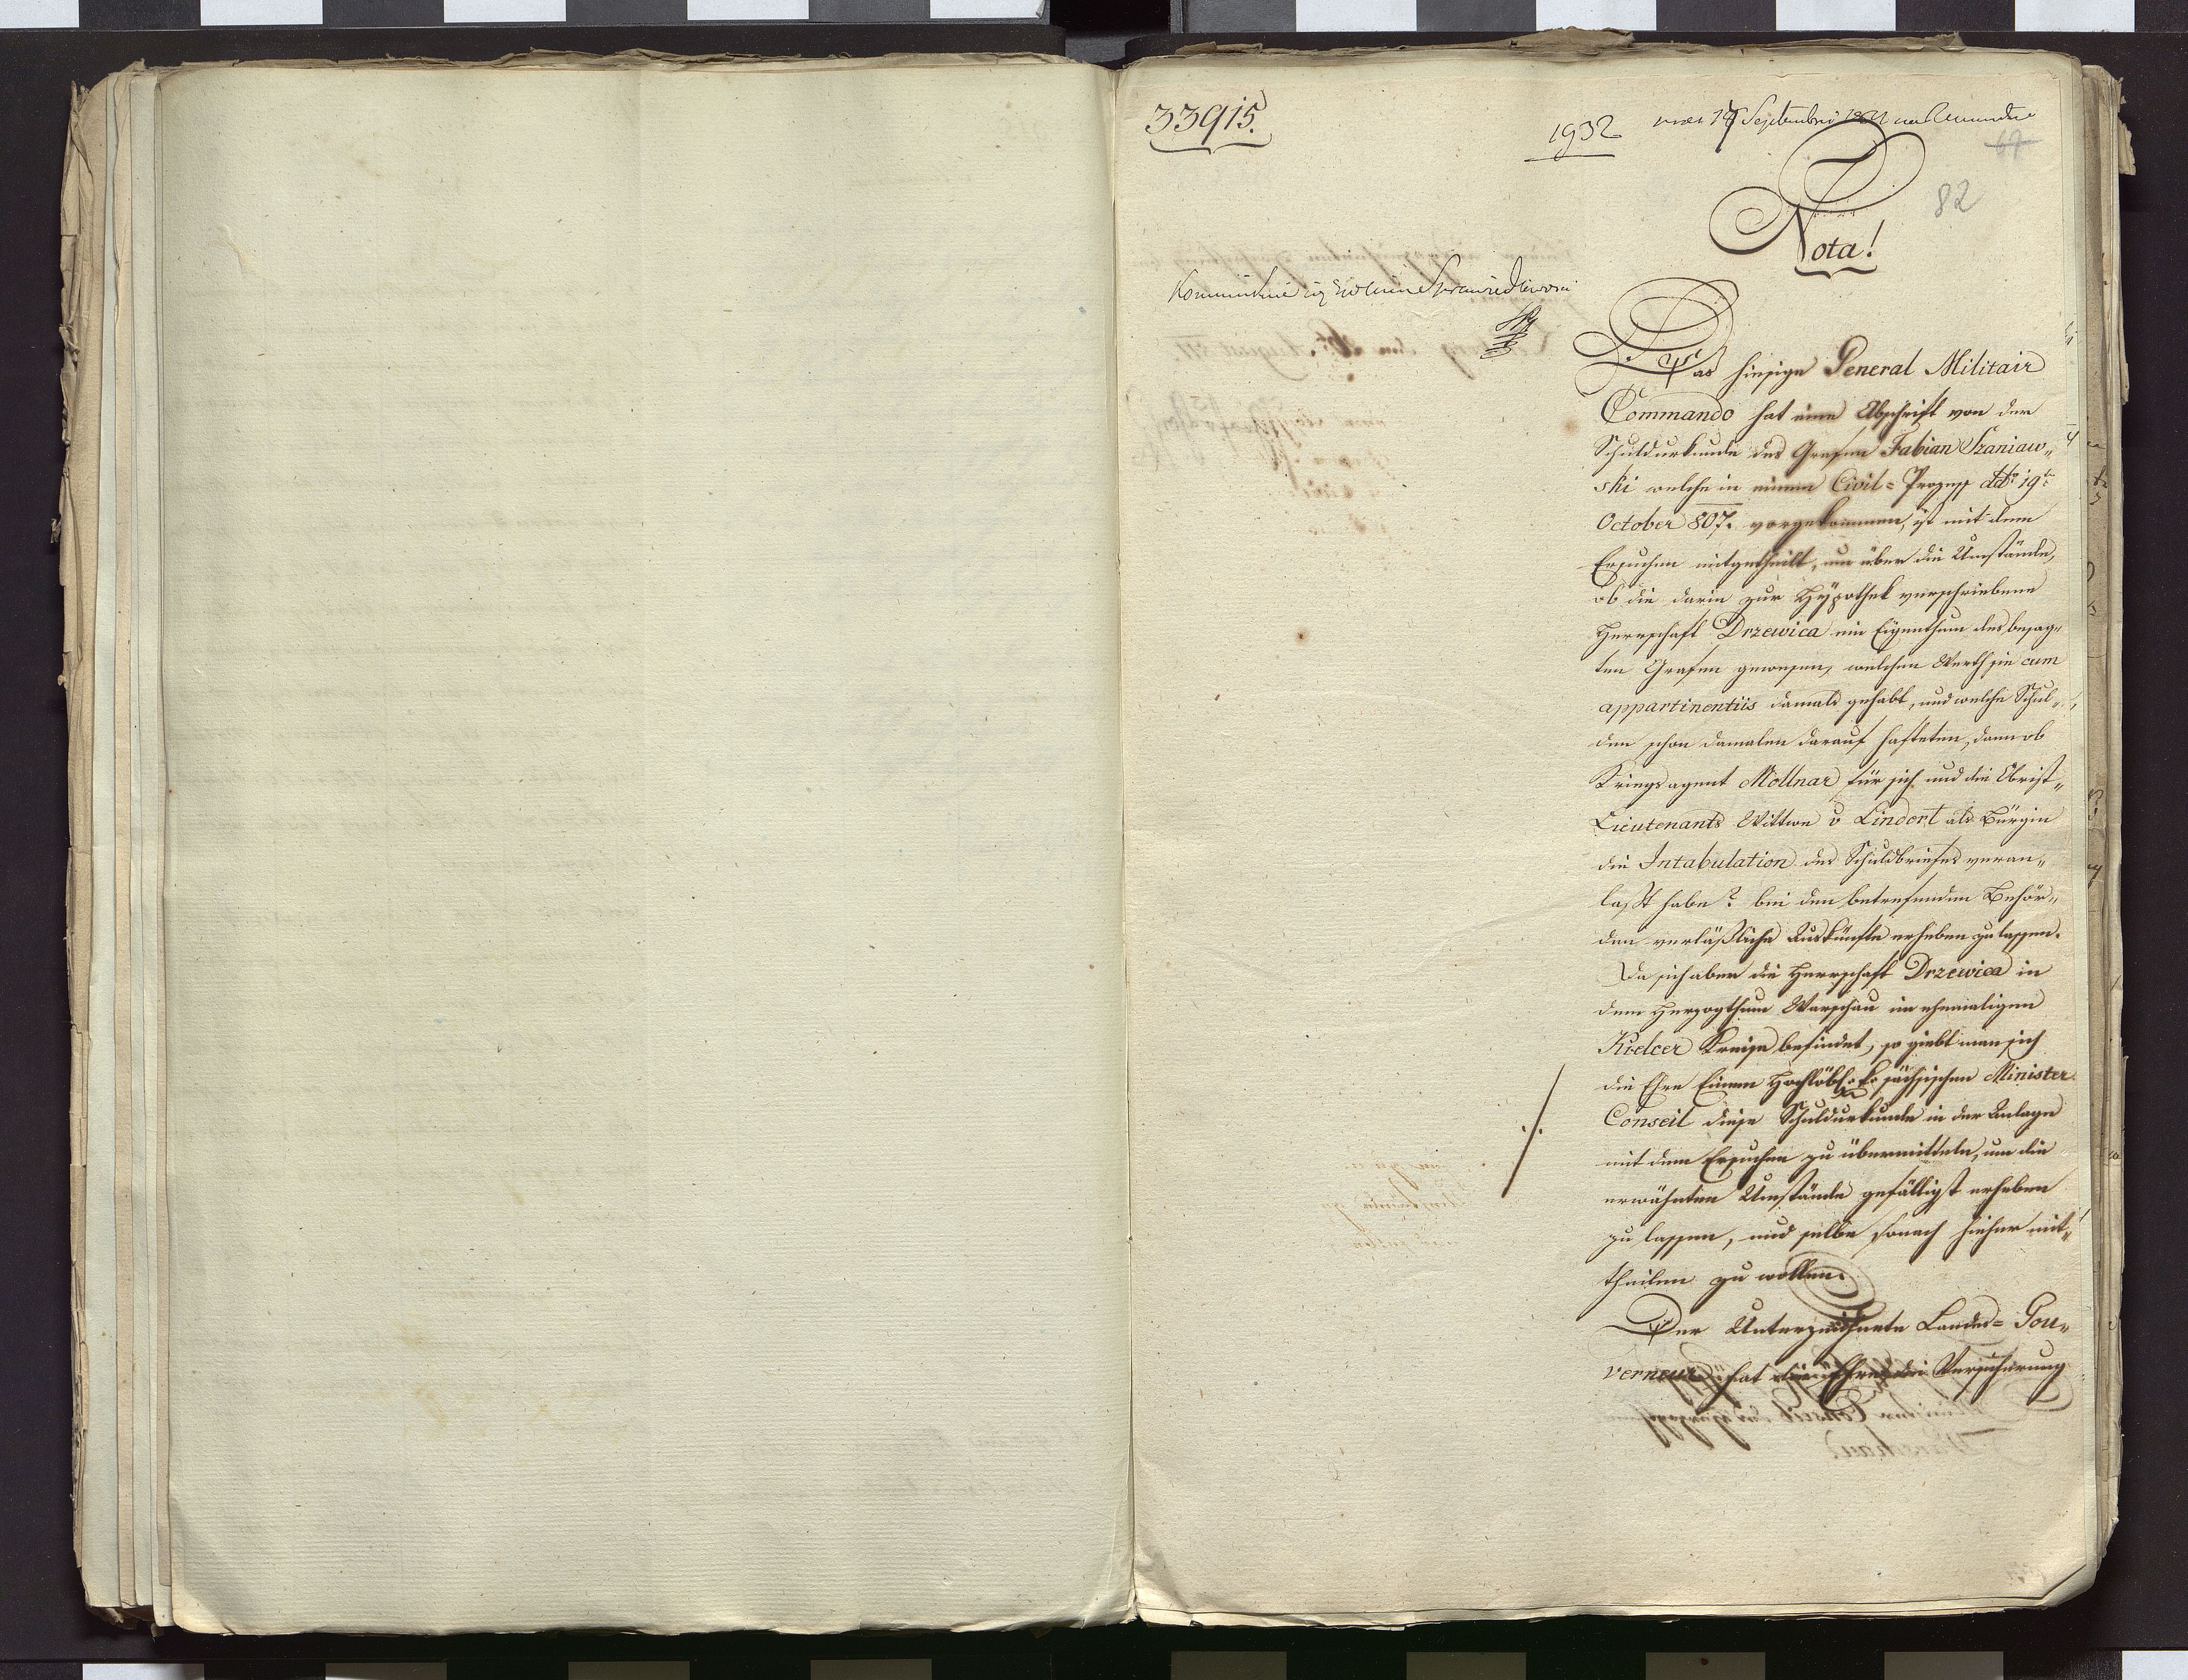 33915.
1932
17 Septembris
67
82
Nota!
Das hiesige General Militair
Commando hat eine Abschrift von der
Schuldurkunde des Grafen Fabian Szaniaw„
ski welche in einem Civil=Prozess ddto 19t
October 807. vorgekommen, ist mit dem
Ersuchen mitgetheilt, um über die Umstände,
ob die darin zur Hypothek verschriebene
Herrschaft Drzewica ein Eigenthum des besag„
ten Grafen gewesen, welchen Werth sie cum
appartinentiis damals gehabt, und welche Schul„
den schon damalen darauf hafteten, dann ob
Kriegsagent Mollnar für sich und die Obrist„
Lieutenants Wittwe v Lindort als Bürgin
die Intabulation des Schuldbriefes veran„
laßt habe? bei den betrefenden Behör„
den verläßliche Auskünfte erheben zu lassen.
Da sich aber die Herrschaft Drzewica in
dem Herzogthum Warschau im ehemaligen
Kielcer Kreise befindet, so giebt man sich
die Ehre Einem Hochlöbl. k. sächsischen Minister
Conseil diese Schuldurkunde in der Anlage
./.
mit dem Ersuchen zu übermitteln, um die
erwähnten Umstände gefälligst erheben
zu lassen, und selbe sonach hieher mit„
theilen zu wollen.
Der Unterzeichnete Landes=Gou„
verneur hat die Ehre die Versicherung